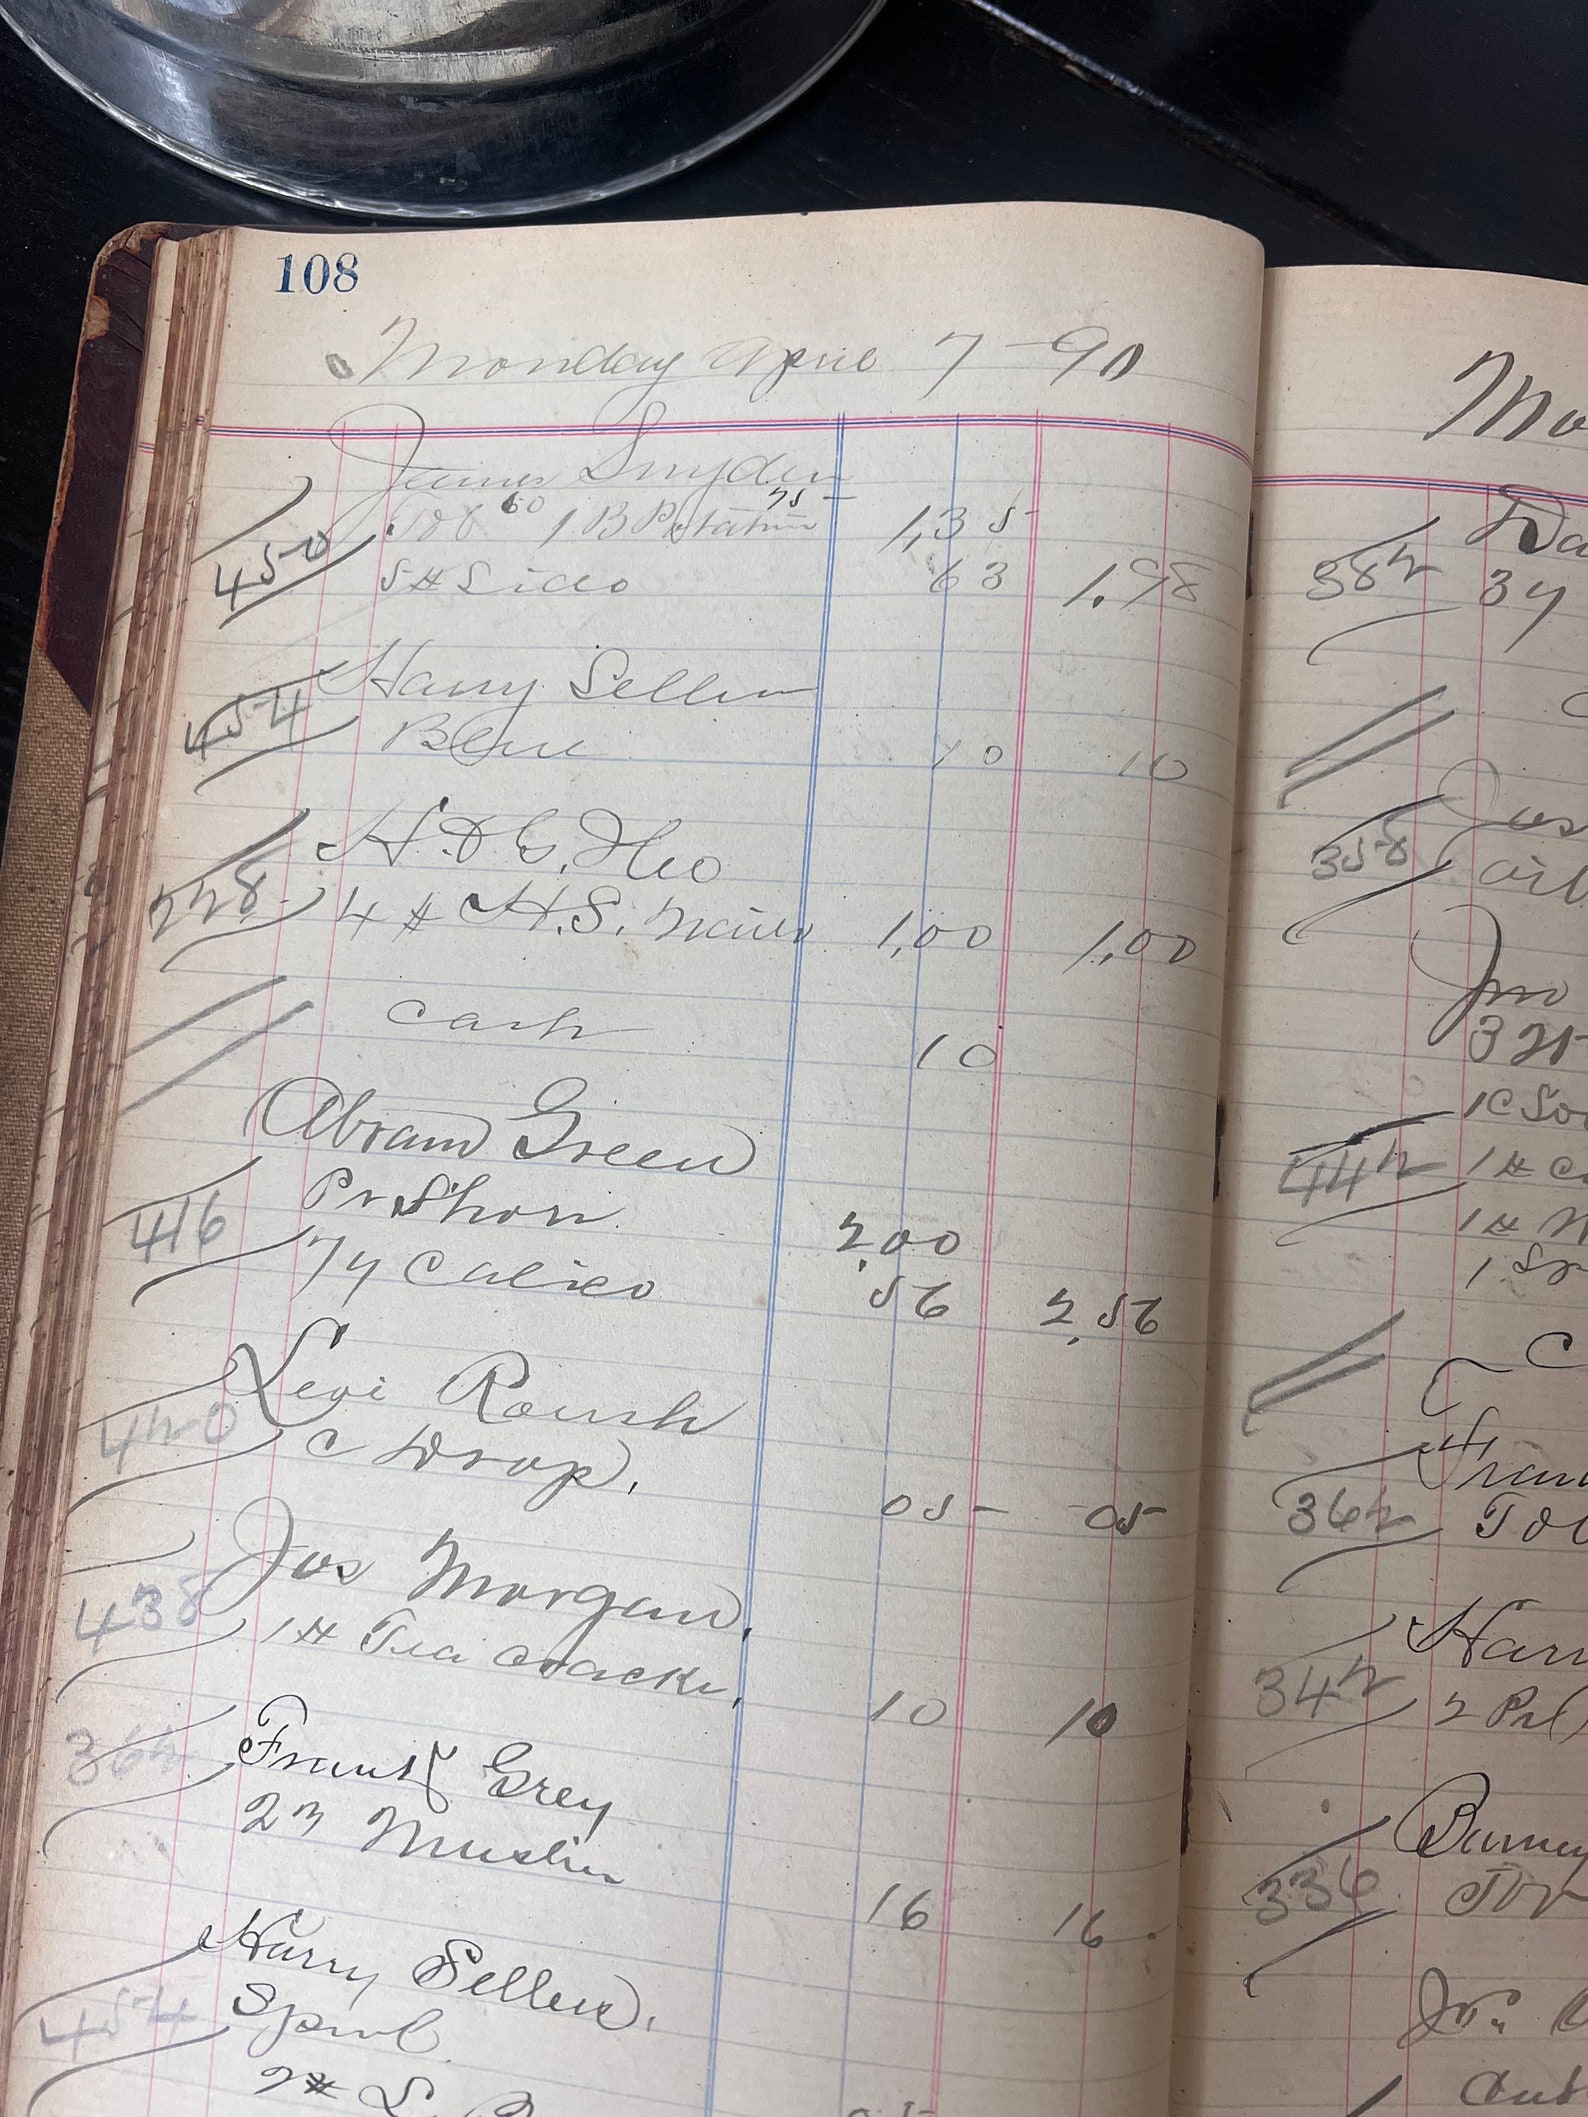 108
Monday April 7-90
James Snyder
450 Tob 60 1 B Potatoes 75 1,35
5# Sides 63 1.98
Harry Sellers
454 Blue 10 10
H. D. G.
228 4# H.S. Nails 1,00 1,00
Cash 10
Abram Green
416 Pr Shoes 2,00
7y Calico 56 2,56
Levi Roush
420 C Drop. 05 05
Jos Morgan.
438 1# Tea Crackr. 10 10
Frank Grey
362 Muslin 16 16
Harry Sellers.
454 Spool
2#
Mo
Da
382 37
Jos
358 oil
Jno
3
1C So
442 1# C
1#
1 Sp
C
Fran
362 Tob
Harr
342 2 Prs
Barney
336 Tob